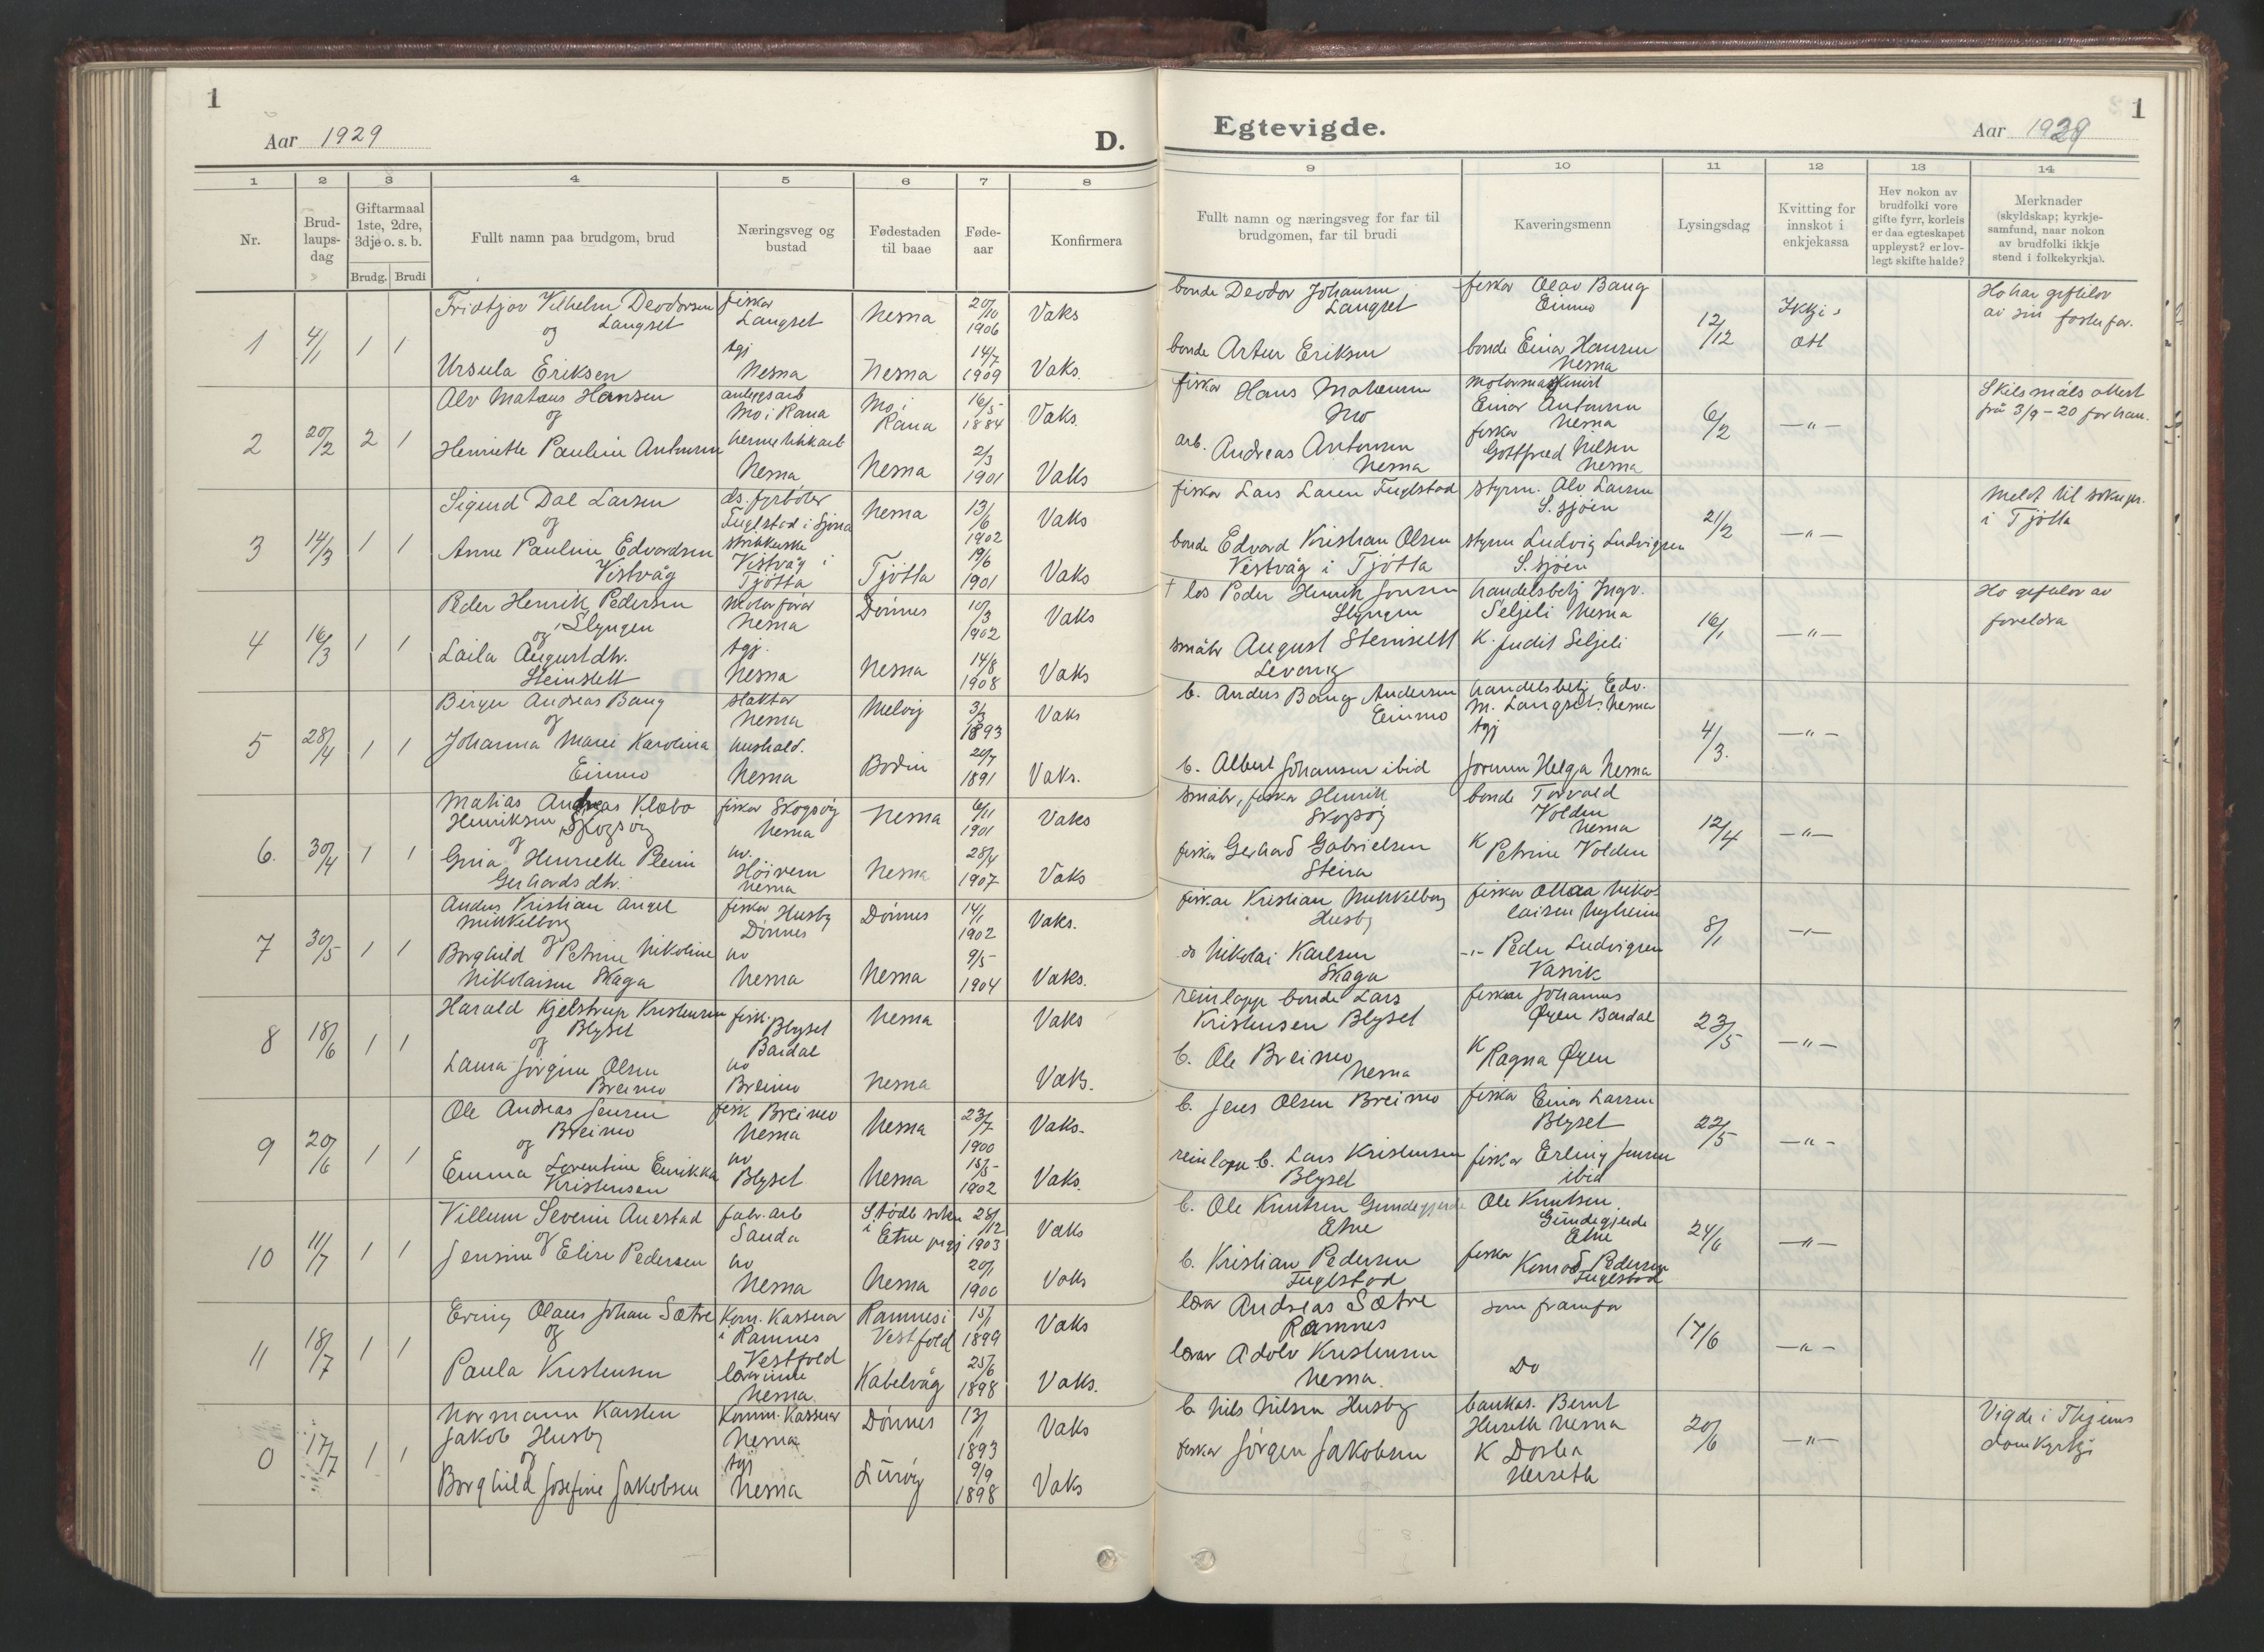 1
Aar 1929
D.
1 2 3 4 5 6 7 8
Nr.
Brud-
laups-
dag
Giftarmaal
1ste, 2dre,
3dje o. s. b.
Brudg. Brudi
Fullt namn paa brudgom, brud
Næringsveg og
bustad
Fødestaden
til baae
Føde-
aar
Konfirmera
1 4/1 1 1
Fridtjov Vilhelm Deodorsen
og Langset
Ursula Eriksen
fiskar
Langset
tgj
Nesna
Nesna
Nesna
20/10
1906
14/7
1909
Vaks
Vaks.
2 20/2 2 1
Alv Mataus Hansen
og
Henriette Pauline Antonsen
anleggsarb
Mo i Rana
Nesna
Mo i
Rana
Nesna
16/5
1884
2/3
1901
Vaks.
Vaks
3 14/3 1 1
Sigurd Dal Larsen
og
Anne Pauline Edvardsen
Vistvåg
ds. fyrbøter
Fuglstad i Sjona
Vistvåg i
Tjøtta
Nesna
Tjøtta
13/6
1902
19/6
1901
Vaks
Vaks
4 16/3 1 1
Peder Henrik Pedersen
og Slyngen
Laila Augustdtr.
Steinslett
Motorførar
Nesna
tgj.
Nesna
Dønnes
Nesna
10/3
1902
14/8
1908
Vaks
Vaks
5 28/4 1 1
Birger Andreas Bang
og
Johanna Marie Karolina
Einmo
slaktar
Nesna
hushald.
Nesna
Melvig
Bodin
3/3
1893
1891
Vaks
Vaks.
6. 30/4 1 1
Matias Andreas Klæbo
Henriksen Skogsøy
og
Gina Henriette Pleim
Gerhardsdtr.
fiskar Skogsøy
Nesna
hv.
Nesna
Nesna
Nesna
6/11
1901
28/4
1907
Vaks
Vaks
7 30/5 1 1
Anders Kristian Angel
Mikkelborg
og
Borghild Petrine Nikoline
Nikolaisen Skaga
fiskar Husby
Dønnes
hv
Nesna
Dønnes
Nesna
14/1
1902
9/5
1904
Vaks.
Vaks.
8 18/6 1 1
Harald Kjelstrup Kristensen
Blyset
og
Laura Jørgine Olsen
Breimo
fisk.
Blyset
Bardal
hv
Breimo
Nesna
Nesna
Vaks
Vaks.
9 20/6 1 1
Ole Andreas Jensen
Breimo
og
Emma Lorentine Enrikka
Kristensen
fisk Breimo
Nesna
hv
Blyset
Nesna
Nesna
23/7
1900
15/5
1902
Vaks.
Vaks.
10 11/7 1 1
Villum Severin Auestad
og
Jensine Elise Pedersen
fabr. arb
Sauda
hv
Nesna
Stødle sokn
i Etne prgj
Nesna
28/12
1903
20/1
1900
Vaks
Vaks
11 18/7 1 1
Erling Olaus Johan Sætre
og
Paula Kristensen
Kom. Kasserar
i Ramnes
Vestfold
lærarinne
Nesna.
Ramnes i
Vestfold
Kabelvåg
15/1
1899
25/6
1898
Vaks
Vaks.
0 17/7 1 1
Normann Karsten
Jakob Husby
og
Borghild Josefine Jakobsen
Komm. Kasserar
Nesna
tgj
Nesna
Dønnes
Lurøy
13/1
1893
9/9
1898
Vaks
Vaks
Egtevigde.
1
Aar 1929
9 10 11 12 13 14
Fullt namn og næringsveg for far til
brudgomen, far til brudi
Kaveringsmenn
Lysingsdag
Kvitting for
innskot i
enkjekassa
Hev nokon av
brudfolki vore
gifte fyrr, korleis
er daa egteskapet
uppløyst? er lov-
legt skifte halde?
Merknader
(skyldskap; kyrkje-
samfund, naar nokon
av brudfolki ikkje
stend i folkekyrkja).
bonde Deodor Johansen
Langset
bonde Artur Eriksen
fiskar Olav Bang
Einmo
bonde Einar Hansen
Nesna
12/12
Ikkje
Ho har giftelov
av sin fosterfar.
fiskar Hans Matensen
Mo
arb. Andreas Antonsen
Nesna
Motormaskinist
Einar Antonsen
fiskar Nesna
Gottfred Nilsen
Nesna
6/2
—"—
Skilsmåls attest
frå 3/9 - 20 for han.
fiskar Lars Larsen Fuglstad
bonde Edvard Kristian Olsen
Vistvåg i Tjøtta
styrm. Alv Larsen
S. sjøen
styrm Ludvig Ludvigsen
S. sjøen
21/2
—"—
Meldt til sokupr.
i Tjøtta
† los Peder Henrik Jonsen
Slyngen
småbr August Steinslett
Levang
handelsbetj Ingv.
Seljeli Nesna
K. Judit Seljeli
16/1
—"—
Ho giftelov av
foreldra
b. Anders Bang Andersen
Einmo
b. Albert Johansen ibid
handelsbetj Edv.
M. Langset. Nesna
tgj
Jorunn Helga Nesna
4/3.
—"—
småbr, fiskar Henrik
Skogsøy
fiskar Gerhard Gabrielsen
Steira
bonde Torvald
Volden
Nesna
K Petrine Volden
12/4
—"—
fiskar Kristian Mikkelborg
Husby
do Nikolai Karlsen
Skaga
fiskar Ottar Niko-
laisen Nyheim
-"- Peder Ludvigsen
Vasvik
8/1
—"—
reinlapp bonde Lars
Kristensen Blyset
b. Ole Breimo
Nesna
fiskar Johannes
Øyen Bardal
K Ragna Øyen
23/5
—"—
b. Jens Olsen Breimo
reinlapp b. Lars Kristensen
Blyset
fiskar Einar Larsen
Blyset
fiskar Erling Jensen
ibid
22/5
—"—
b. Ole Knutsen Grindegjerde
Etne
b. Kristian Pedersen
Fuglstad
Ole Knutsen
Grindegjerde
Etne
fiskar Konrad Pedersen
Fuglstad
24/6
—"—
lærar Andreas Sætre
Ramnes
lærar Adolv Kristensen
Nesna.
som framfor
Do
17/6
—"—
b Nils Nilsen Husby
fiskar Jørgen Jakobsen
bankas. Bernt
Herseth Nesna
K Dortea
Herseth
20/6
—"—
Vigde i Thjems
domkyrkje